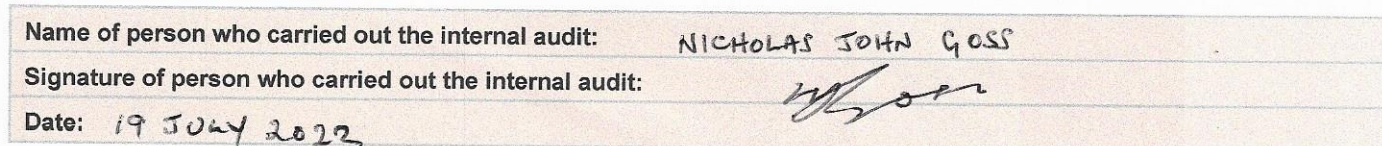 Name of person who carried out the internal audit: NICHOLAS JOHN GOSS
Signature of person who carried out the internal audit:
Date: 19 JULY 2022